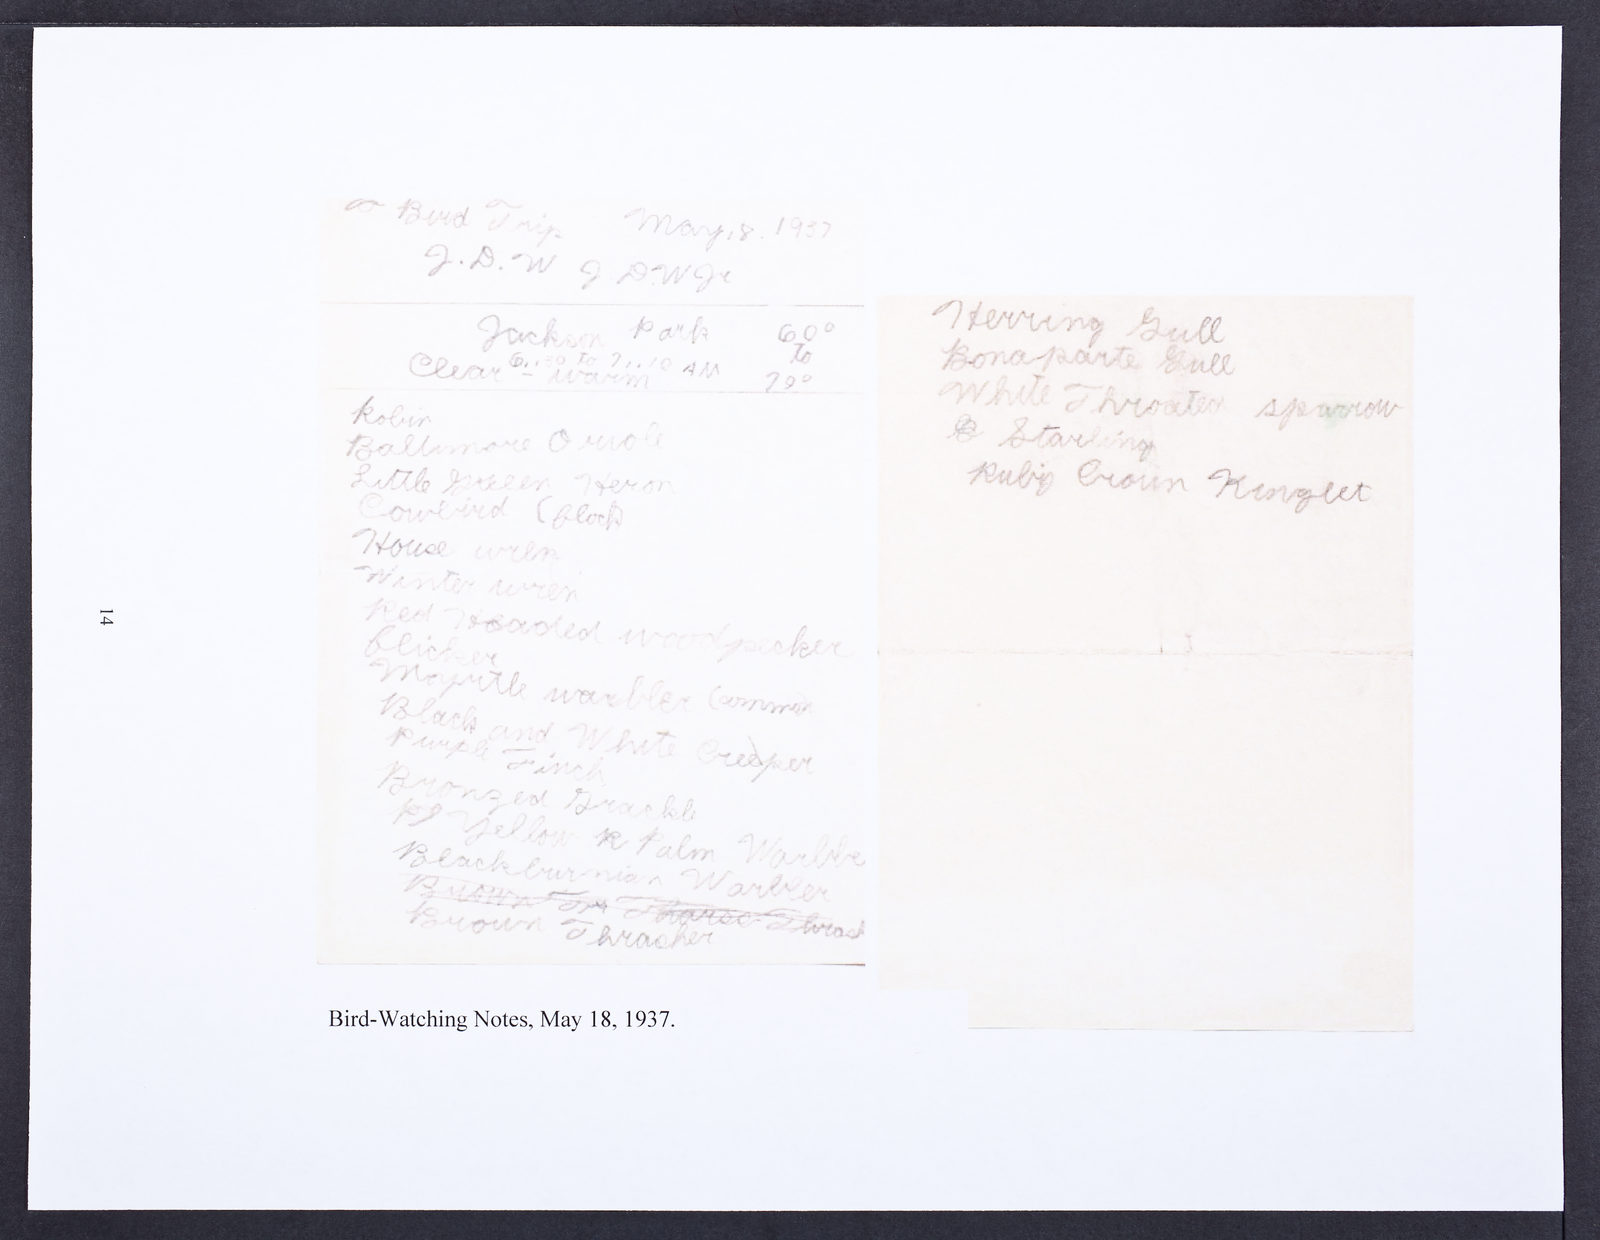 Bird Trip May, 18. 1937
J. D. W J. D. W Jr
Jackson Park 60°
6:30 to 7:10 AM to
Clear - warm 70°
Robin
Baltimore Oriole
Little Green Heron
Cowbird (flock)
House wren
Winter wren
Red Headed woodpecker
flicker
Myrtle warbler Common
Black and White Creeper
Purple Finch
Bronzed Grackle
Yellow R Palm Warble
Blackburnian Warbler
Brown
Brown Thrasher
Herring Gull
Bonaparte Gull
White Throated sparrow
Starling
Ruby Crown Kinglet
Bird-Watching Notes, May 18, 1937.
14